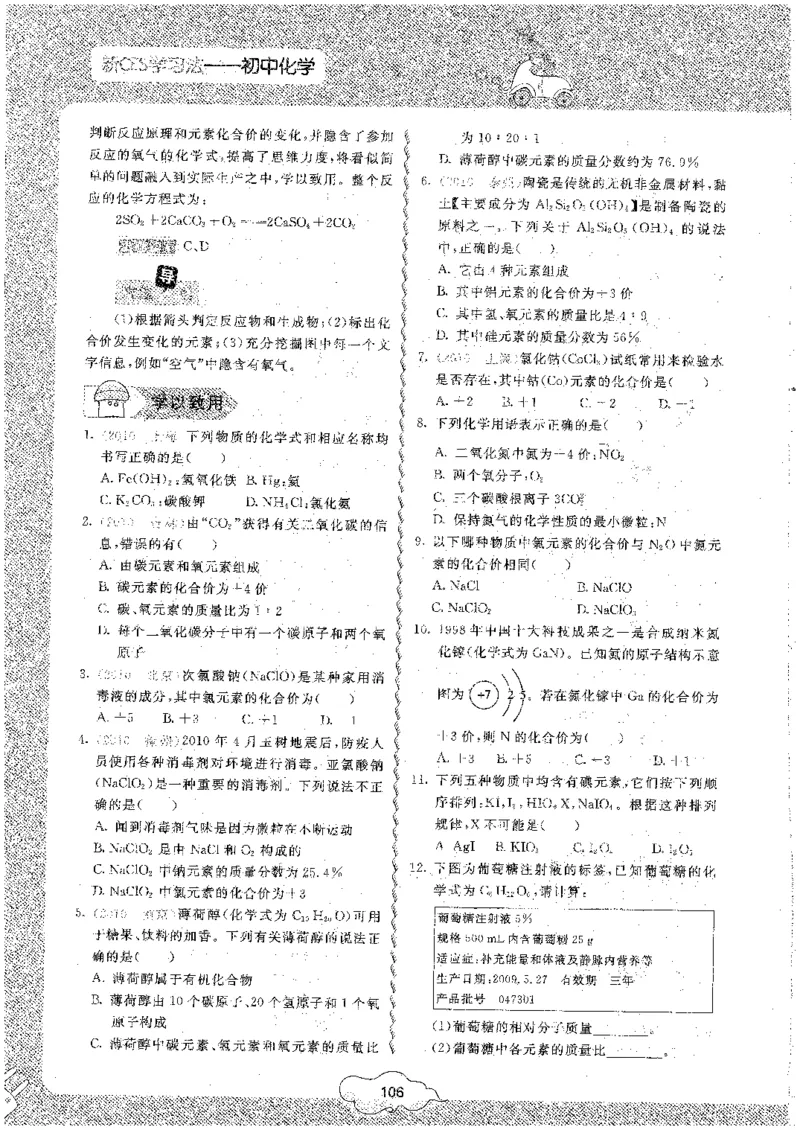 学习法——初中化学
判断反应原理和元素化合价的变化,并隐含了参加
反应的氧气的化学式,提高了思维力度,将看似简
单的问题融入到实际生产之中,学以致用。整个反
应的化学方程式为:
2SO₂+2CaCO₃+O₂══2CaSO₄+2CO₂
C、D
导
(1)根据箭头判定反应物和生成物;(2)标出化
合价发生变化的元素;(3)充分挖掘图中每一个文
字信息,例如“空气”中隐含有氧气。
学以致用
1. (2010 上海)下列物质的化学式和相应名称均
书写正确的是( )
A. Fe(OH)₂:氢氧化铁 B. Hg:氢
C. K₂CO₃:碳酸钾 D. NH₄Cl:氯化氨
2. (2010 )由“CO₂”获得有关二氧化碳的信
息,错误的有( )
A. 由碳元素和氧元素组成
B. 碳元素的化合价为+4价
C. 碳、氧元素的质量比为1:2
D. 每个二氧化碳分子中有一个碳原子和两个氧
原子
3. (2010 北京)次氯酸钠(NaClO)是某种家用消
毒液的成分,其中氯元素的化合价为( )
A. +5 B. +3 C. +1 D. 1
4. (2010 )2010年4月玉树地震后,防疫人
员使用各种消毒剂对环境进行消毒。亚氯酸钠
(NaClO₂)是一种重要的消毒剂。下列说法不正
确的是( )
A. 闻到消毒剂气味是因为微粒在不断运动
B. NaClO₂是由NaCl和O₂构成的
C. NaClO₂中钠元素的质量分数为25.4%
D. NaClO₂中氯元素的化合价为+3
5. (2010 南京)薄荷醇(化学式为C₁₀H₂₀O)可用
于糖果、饮料的加香。下列有关薄荷醇的说法正
确的是( )
A. 薄荷醇属于有机化合物
B. 薄荷醇由10个碳原子、20个氢原子和1个氧
原子构成
C. 薄荷醇中碳元素、氢元素和氧元素的质量比
为10:20:1
D. 薄荷醇中碳元素的质量分数约为76.9%
6. (2010 )陶瓷是传统的无机非金属材料,黏
土【主要成分为Al₂Si₂O₅(OH)₄】是制备陶瓷的
原料之一。下列关于Al₂Si₂O₅(OH)₄的说法
中,正确的是( )
A. 它由4种元素组成
B. 其中铝元素的化合价为+3价
C. 其中氢、氧元素的质量比是4:9
D. 其中硅元素的质量分数为56%
7. (2010 上海)氯化钴(CoCl₂)试纸常用来检验水
是否存在,其中钴(Co)元素的化合价是( )
A. +2 B. +1 C. −2 D. −1
8. 下列化学用语表示正确的是( )
A. 二氧化氮中氮为+4价:NO₂
B. 两个氧分子:O₂
C. 三个碳酸根离子3CO₃²⁻
D. 保持氮气的化学性质的最小微粒:N
9. 以下哪种物质中氯元素的化合价与N₂O中氮元
素的化合价相同( )
A. NaCl B. NaClO
C. NaClO₂ D. NaClO₃
10. 1998年中国十大科技成果之一是合成纳米氮
化镓(化学式为GaN)。已知氮的原子结构示意
图为 +7 2 5。若在氮化镓中Ga的化合价为
+3价,则N的化合价为( )
A. +3 B. +5 C. −3 D. +1
11. 下列五种物质中均含有碘元素,它们按下列顺
序排列:KI,I₂,HIO,X,NaIO₄。根据这种排列
规律,X不可能是( )
A. AgI B. KIO₃ C. I₂O₅ D. I₂O₃
12. 下图为葡萄糖注射液的标签,已知葡萄糖的化
学式为C₆H₁₂O₆,请计算:
葡萄糖注射液5%
规格500 mL内含葡萄糖25 g
适应症:补充能量和体液及静脉内营养等
生产日期:2009.5.27 有效期 三年
产品批号 047301
(1)葡萄糖的相对分子质量______。
(2)葡萄糖中各元素的质量比______。
106